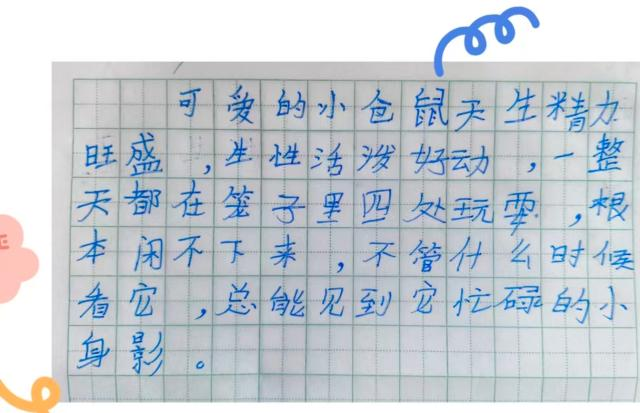 可爱的小仓鼠天生精力
旺盛，生性活泼好动，一整
天都在笼子里四处玩耍，根
本闲不下来，不管什么时候
看它，总能见到它忙碌的小
身影。